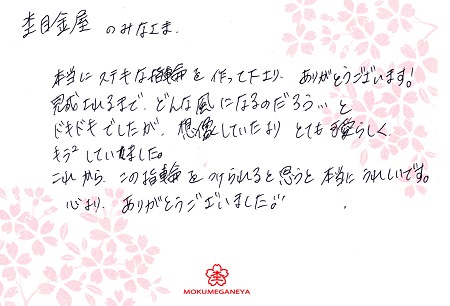 杢目金屋 のみなさま
本当に ステキな指輪を 作って下さり、ありがとうございます!
完成されるまで、どんな風になるのだろう…と
ドキドキでしたが、想像していたより とても 愛らしく
キラ²していました。
これから この指輪を つけられると思うと 本当に うれしいです。
心より、ありがとうございました。
MOKUMEGANEYA